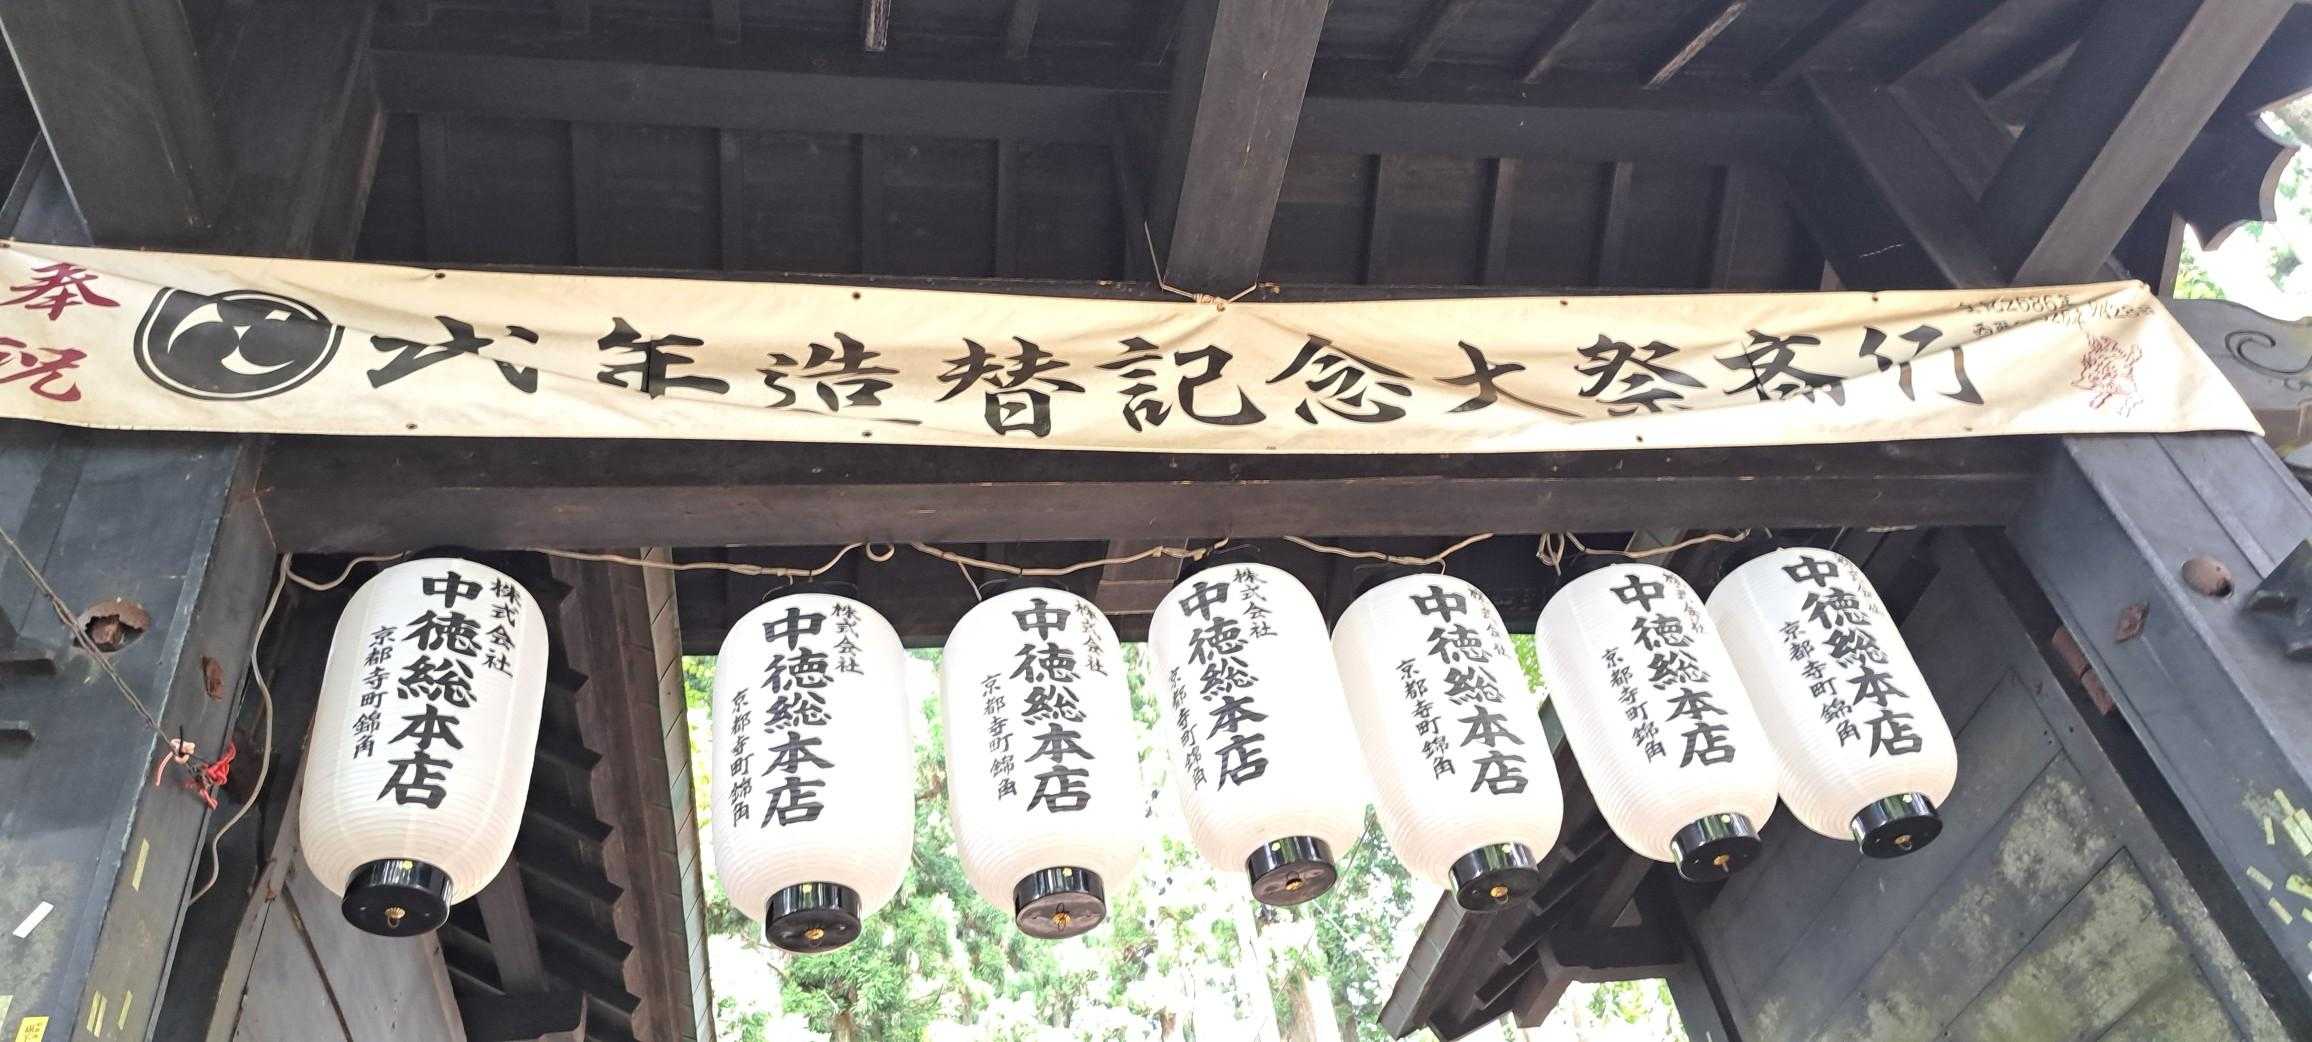 奉祝
式年造替記念大祭斎行
株式会社
中徳総本店
京都寺町錦角
株式会社
中徳総本店
京都寺町錦角
株式会社
中徳総本店
京都寺町錦角
株式会社
中徳総本店
京都寺町錦角
株式会社
中徳総本店
京都寺町錦角
株式会社
中徳総本店
京都寺町錦角
株式会社
中徳総本店
京都寺町錦角